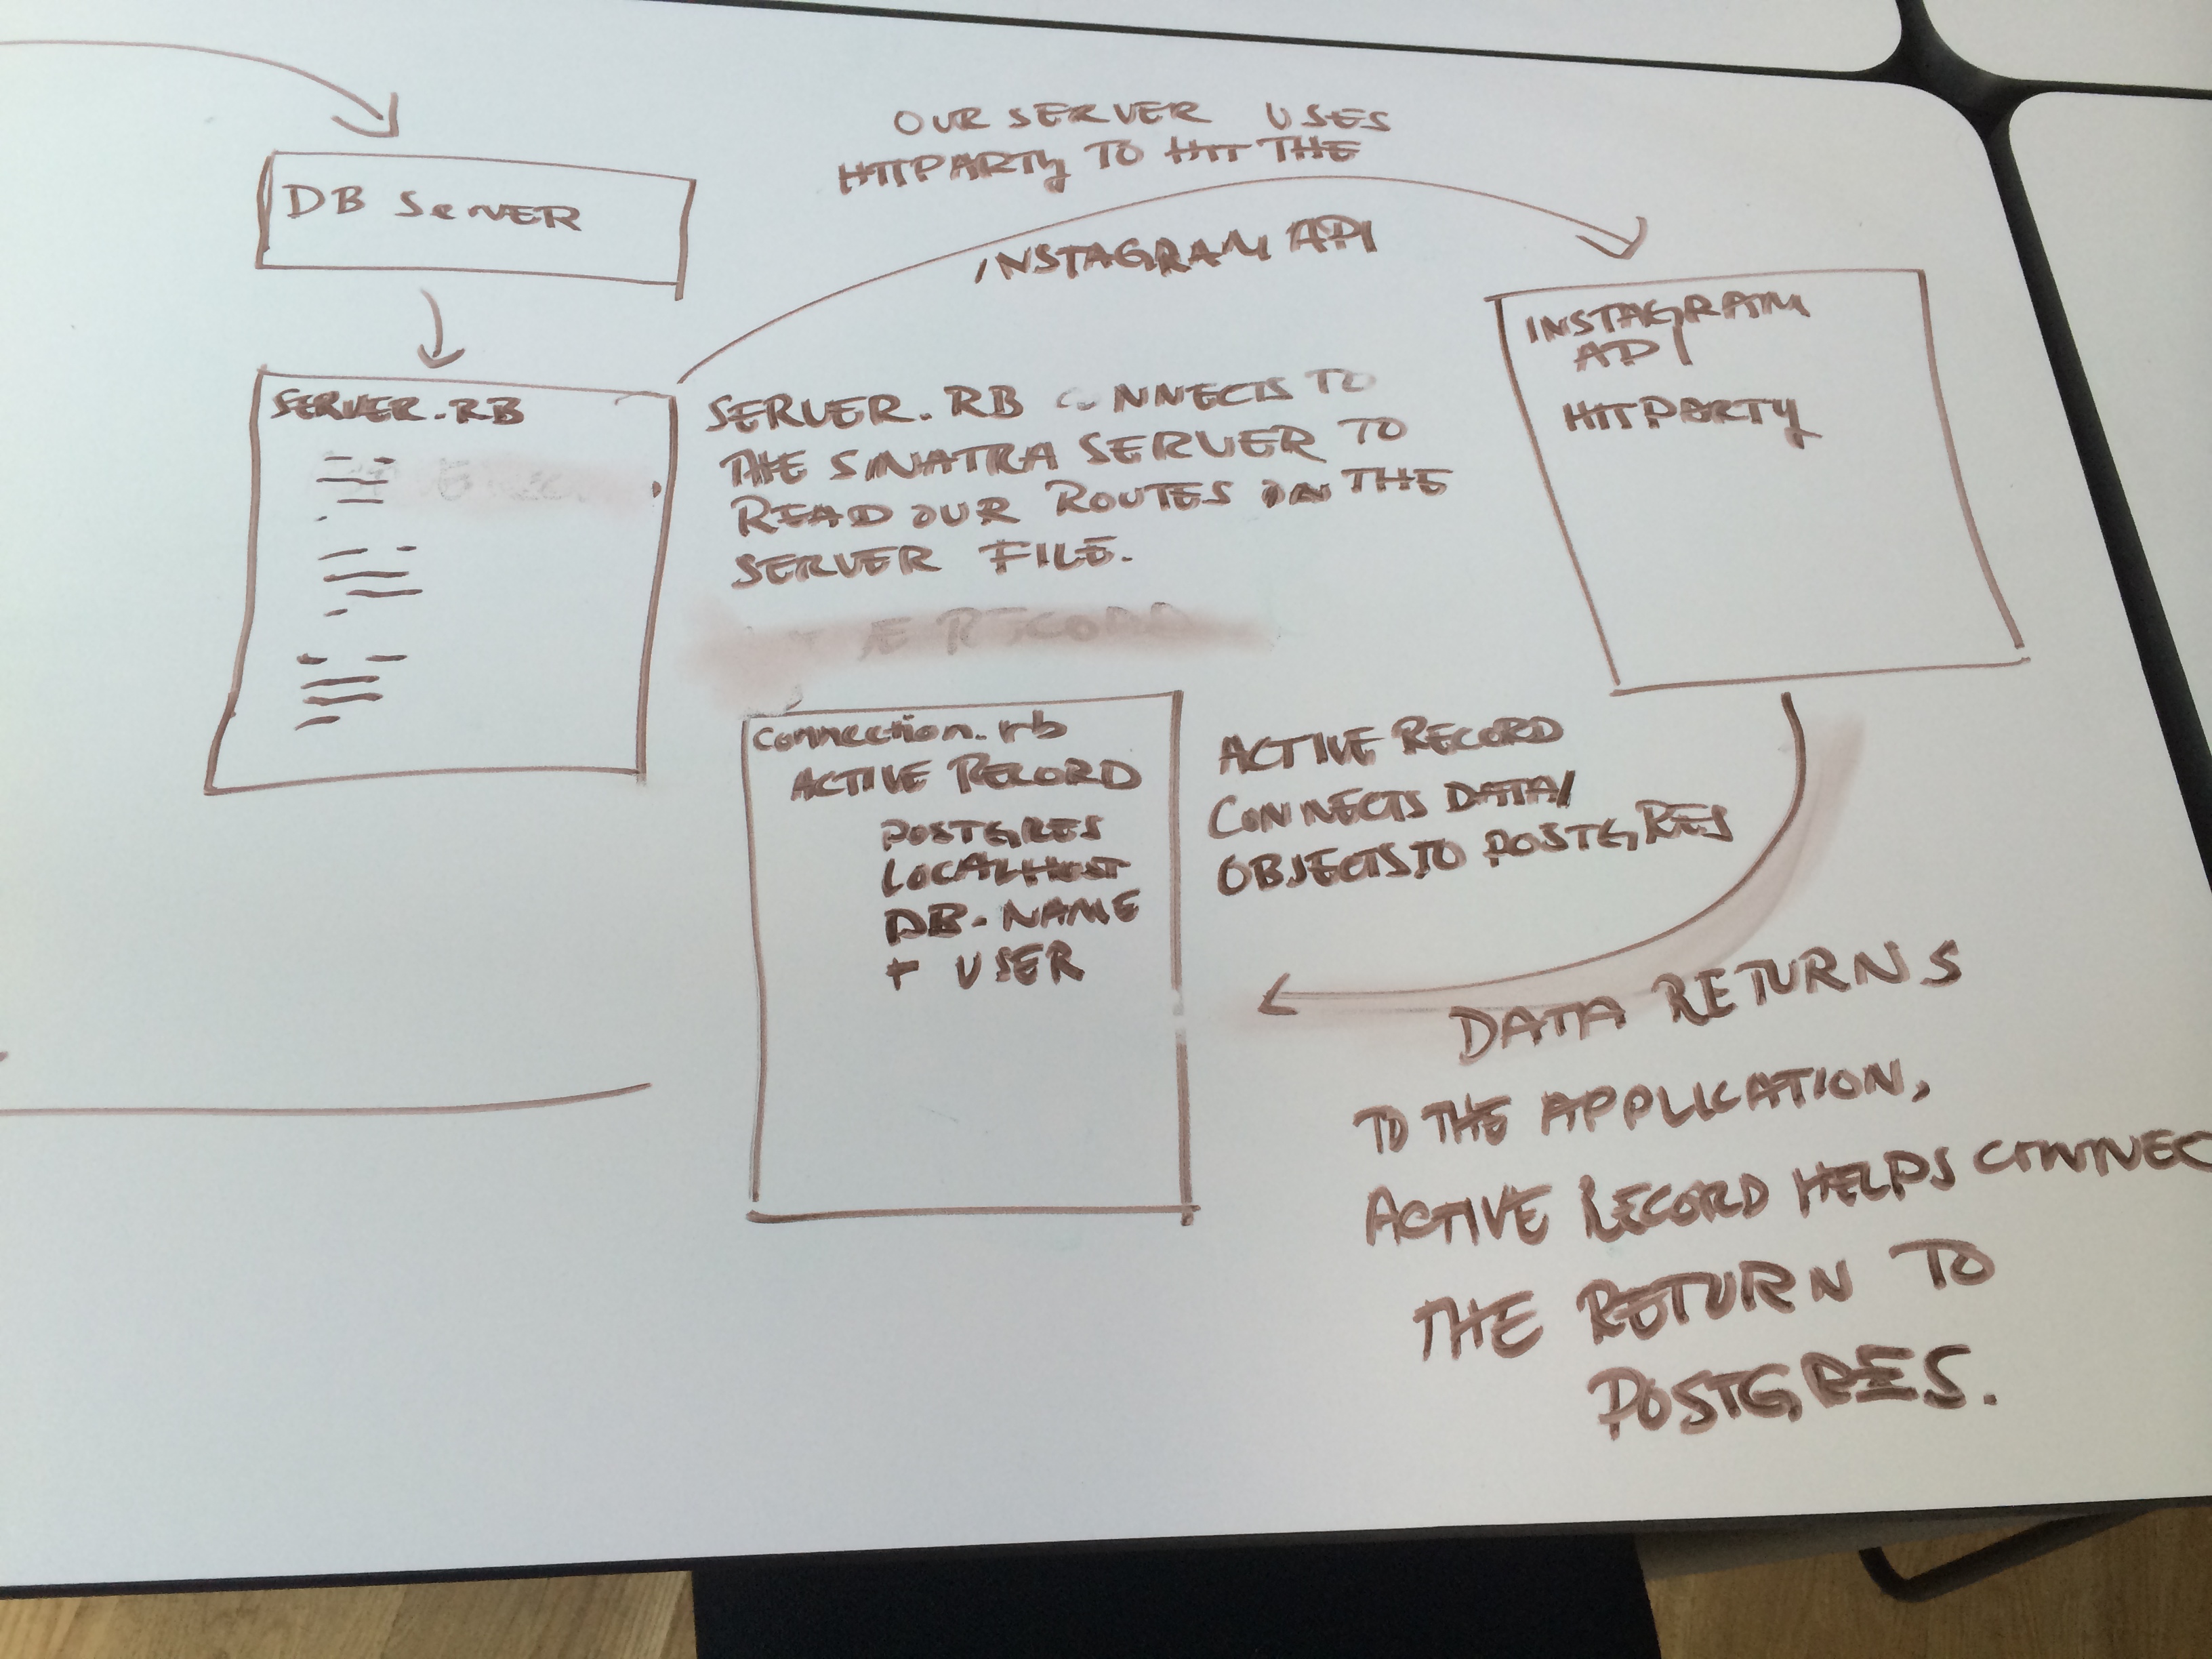 DB SERVER
OUR SERVER USES
HTTPARTY TO HIT THE
INSTAGRAM API
INSTAGRAM
API
HTTPARTY
SERVER.RB
SERVER.RB CONNECTS TO
THE SINATRA SERVER TO
READ OUR ROUTES ON THE
SERVER FILE.
RECORD
connection.rb
ACTIVE RECORD
POSTGRES
LOCALHOST
DB-NAME
+ USER
ACTIVE RECORD
CONNECTS DATA/
OBJECTS TO POSTGRES
DATA RETURNS
TO THE APPLICATION,
ACTIVE RECORD HELPS CONNEC
THE RETURN TO
POSTGRES.